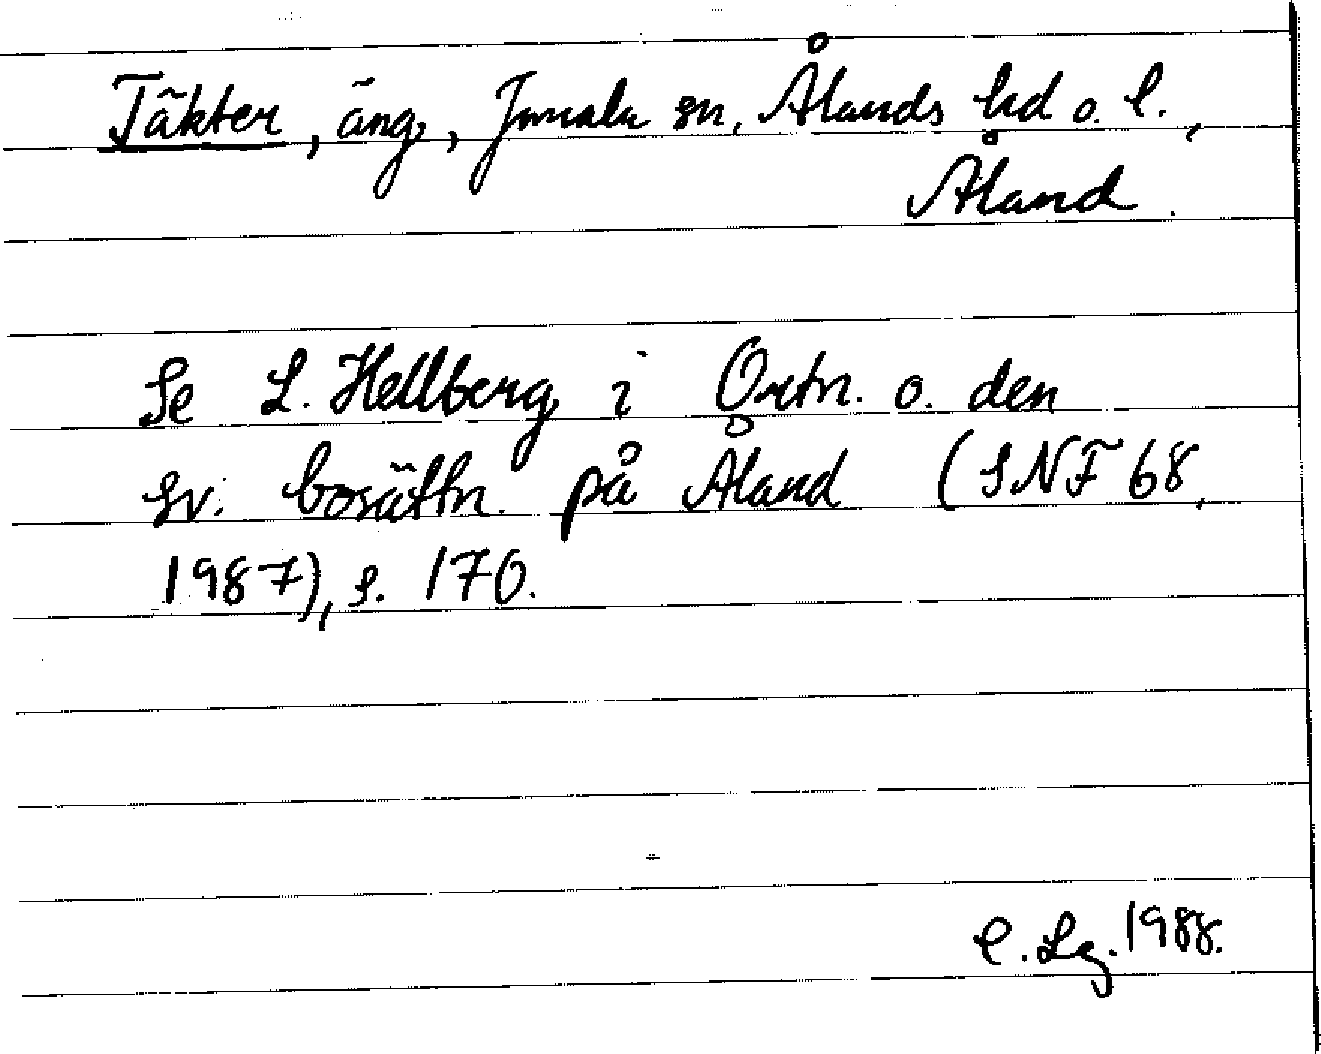 Täkter, äng, Jomala sn, Ålands hd o. l.,
Åland.
Se L. Hellberg i Ortn. o. den
sv. bosättn. på Åland (SNF 68,
1987), s. 170.
C. Lg. 1988.